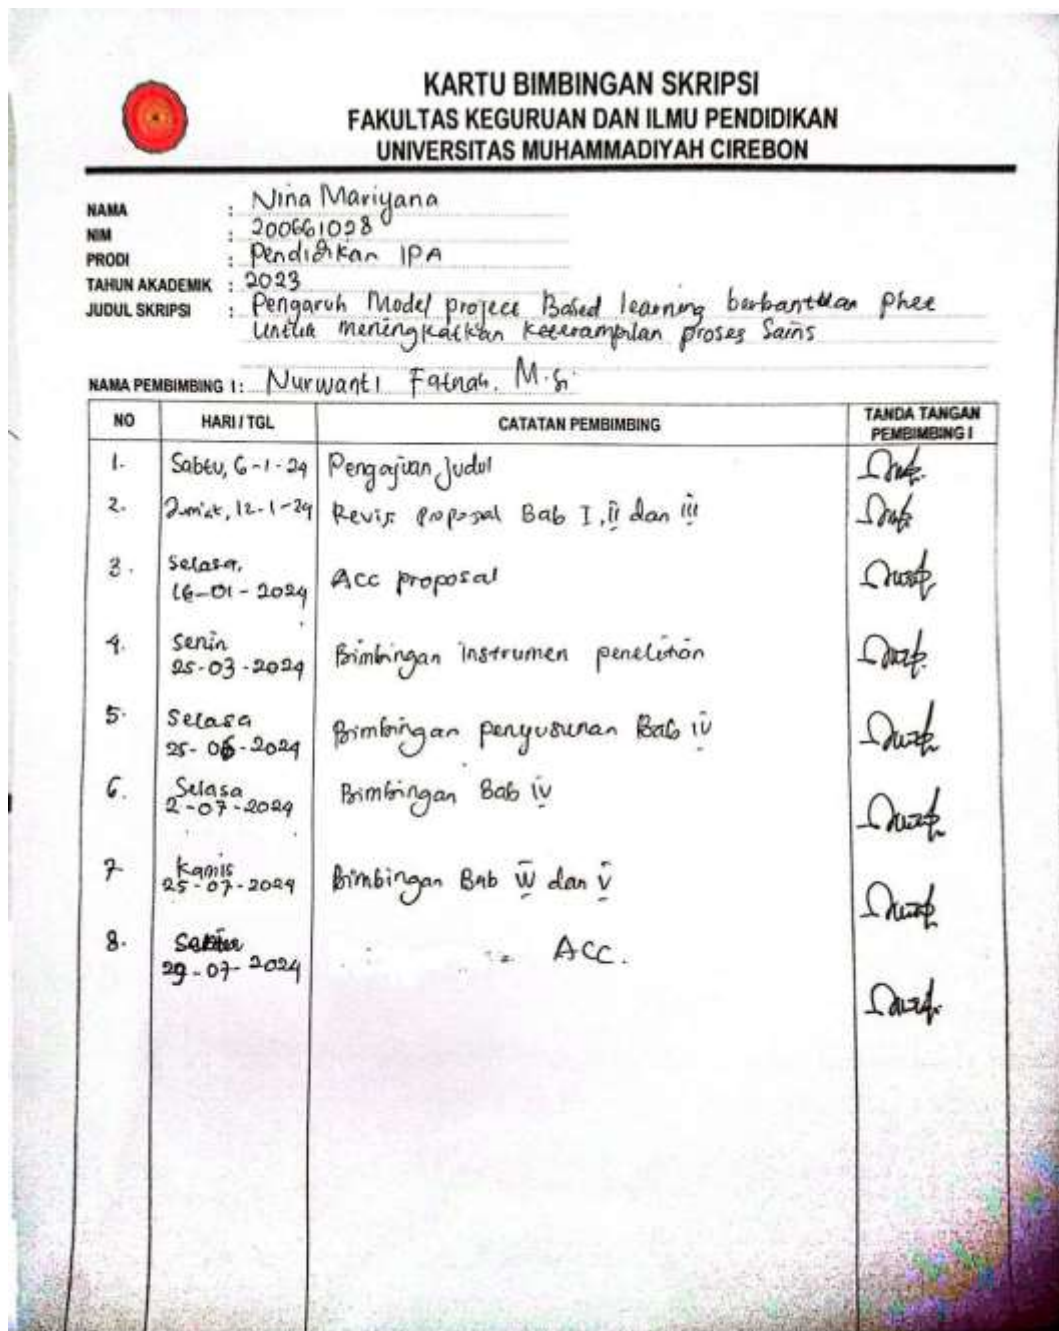 KARTU BIMBINGAN SKRIPSI
FAKULTAS KEGURUAN DAN ILMU PENDIDIKAN
UNIVERSITAS MUHAMMADIYAH CIREBON
NAMA : Nina Mariyana
NIM : 200661028
PRODI : Pendidikan IPA
TAHUN AKADEMIK : 2023
JUDUL SKRIPSI : Pengaruh Model project Based learning berbantukan phet
untuk meningkatkan keterampilan proses Sains
NAMA PEMBIMBING 1 : Nurwanti Fatnah. M.Si
NO HARI / TGL CATATAN PEMBIMBING TANDA TANGAN PEMBIMBING I
1. Sabtu, 6-1-24 Pengajuan Judul
2. Jum'at, 12-1-24 Revisi proposal Bab I, ii dan iii
3. Selasa,
16-01-2024 Acc proposal
4. Senin
25-03-2024 Bimbingan instrumen penelitian
5. Selasa
25-06-2024 Bimbingan penyusunan Bab iv
6. Selasa
2-07-2024 Bimbingan Bab iv
7 Kamis
25-07-2024 Bimbingan Bab iv dan v
8.
29-07-2024 ACC.